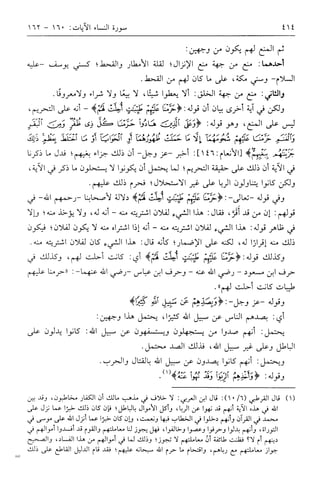 ٤١٤
سورة النساء الآيات: ١٦٠ - ١٦٢
ثم المنع لهم يكون من وجهين:
أحدهما: منع من جهة منع الإنزال؛ لقلة الأمطار والقحط؛ كسني يوسف -عليه
السلام- وسني مكة، على ما كان لهم من القحط.
والثاني: منع من جهة الخلق: ألا يعطوا شيئًا، لا بيعًا ولا شراء ولامعروفًا.
ولكن في آية أخرى بيان أن قوله: ﴿حَرَّمْنَا عَلَيْهِمْ طَيِّبَاتٍ أُحِلَّتْ لَهُمْ﴾ - أنه على التحريم،
ليس على المنع، وهو قوله: ﴿وَعَلَى الَّذِينَ هَادُوا حَرَّمْنَا كُلَّ ذِي ظُفُرٍ وَمِنَ الْبَقَرِ
وَالْغَنَمِ حَرَّمْنَا عَلَيْهِمْ شُحُومَهُمَا إِلَّا مَا حَمَلَتْ ظُهُورُهُمَا أَوِ الْحَوَايَا أَوْ مَا اخْتَلَطَ بِعَظْمٍ ذَلِكَ
جَزَيْنَاهُمْ بِبَغْيِهِمْ﴾ [الأنعام: ١٤٦]: أخبر -عز وجل- أن ذلك جزاء بغيهم؛ فدل ما ذكرنا
في الآية أن ذلك على حقيقة التحريم؛ لما يحتمل أن يكونوا لا يستحلون ما ذكر في الآية،
ولكن كانوا يتناولون الربا على غير الاستحلال؛ فحرم ذلك عليهم.
وفي قوله -تعالى-: ﴿حَرَّمْنَا عَلَيْهِمْ طَيِّبَاتٍ أُحِلَّتْ لَهُمْ﴾ دلالة لأصحابنا -رحمهم الله- في
قولهم: إن من قد أَقَرَّ، فقال: هذا الشيء لفلان اشتريته منه - أنه له، ولا يؤخذ منه؛ وإلا
في ظاهر قوله: هذا الشيء لفلان اشتريته منه - أنه إذا اشتراه منه لا يكون لفلان؛ فيكون
ذلك منه إقرارًا له، لكنه على الإضمار؛ كأنه قال: هذا الشيء كان لفلان اشتريته منه.
وكذلك قوله: ﴿حَرَّمْنَا عَلَيْهِمْ طَيِّبَاتٍ أُحِلَّتْ لَهُمْ﴾ أي: كانت أحلت لهم، وكذلك في
حرف ابن مسعود - رضي الله عنه - وحرف ابن عباس -رضي الله عنهما-: «حرمنا عليهم
طيبات كانت أحلت لهم».
وقوله -عز وجل-: ﴿وَبِصَدِّهِمْ عَنْ سَبِيلِ اللَّهِ كَثِيرًا﴾
أي: بصدهم الناس عن سبيل الله كثيرًا، يحتمل هذا وجهين:
يحتمل: أنهم صدوا من يستجهلون ويستسفهون عن سبيل الله: كانوا يدلون على
الباطل وعلى غير سبيل الله، فذلك الصد محتمل.
ويحتمل: أنهم كانوا يصدون عن سبيل الله بالقتال والحرب.
وقوله: ﴿وَأَخْذِهِمُ الرِّبَا وَقَدْ نُهُوا عَنْهُ﴾(١).
(١) قال القرطبي (١٠/٦): قال ابن العربي: لا خلاف في مذهب مالك أن الكفار مخاطبون، وقد بين
الله في هذه الآية أنهم قد نهوا عن الربا، وأكل الأموال بالباطل؛ فإن كان ذلك خبرًا عما نزل على
محمد في القرآن وأنهم دخلوا في الخطاب فبها ونعمت، وإن كان خبرًا عما أنزل الله على موسى في
التوراة، وأنهم بدلوا وحرفوا وعصوا وخالفوا، فهل يجوز لنا معاملتهم والقوم قد أفسدوا أموالهم في
دينهم أم لا؟ فظنت طائفة أن معاملتهم لا تجوز؛ وذلك لما في أموالهم من هذا الفساد، والصحيح
جواز معاملتهم مع رباهم، واقتحام ما حرم الله سبحانه عليهم؛ فقد قام الدليل القاطع على ذلك